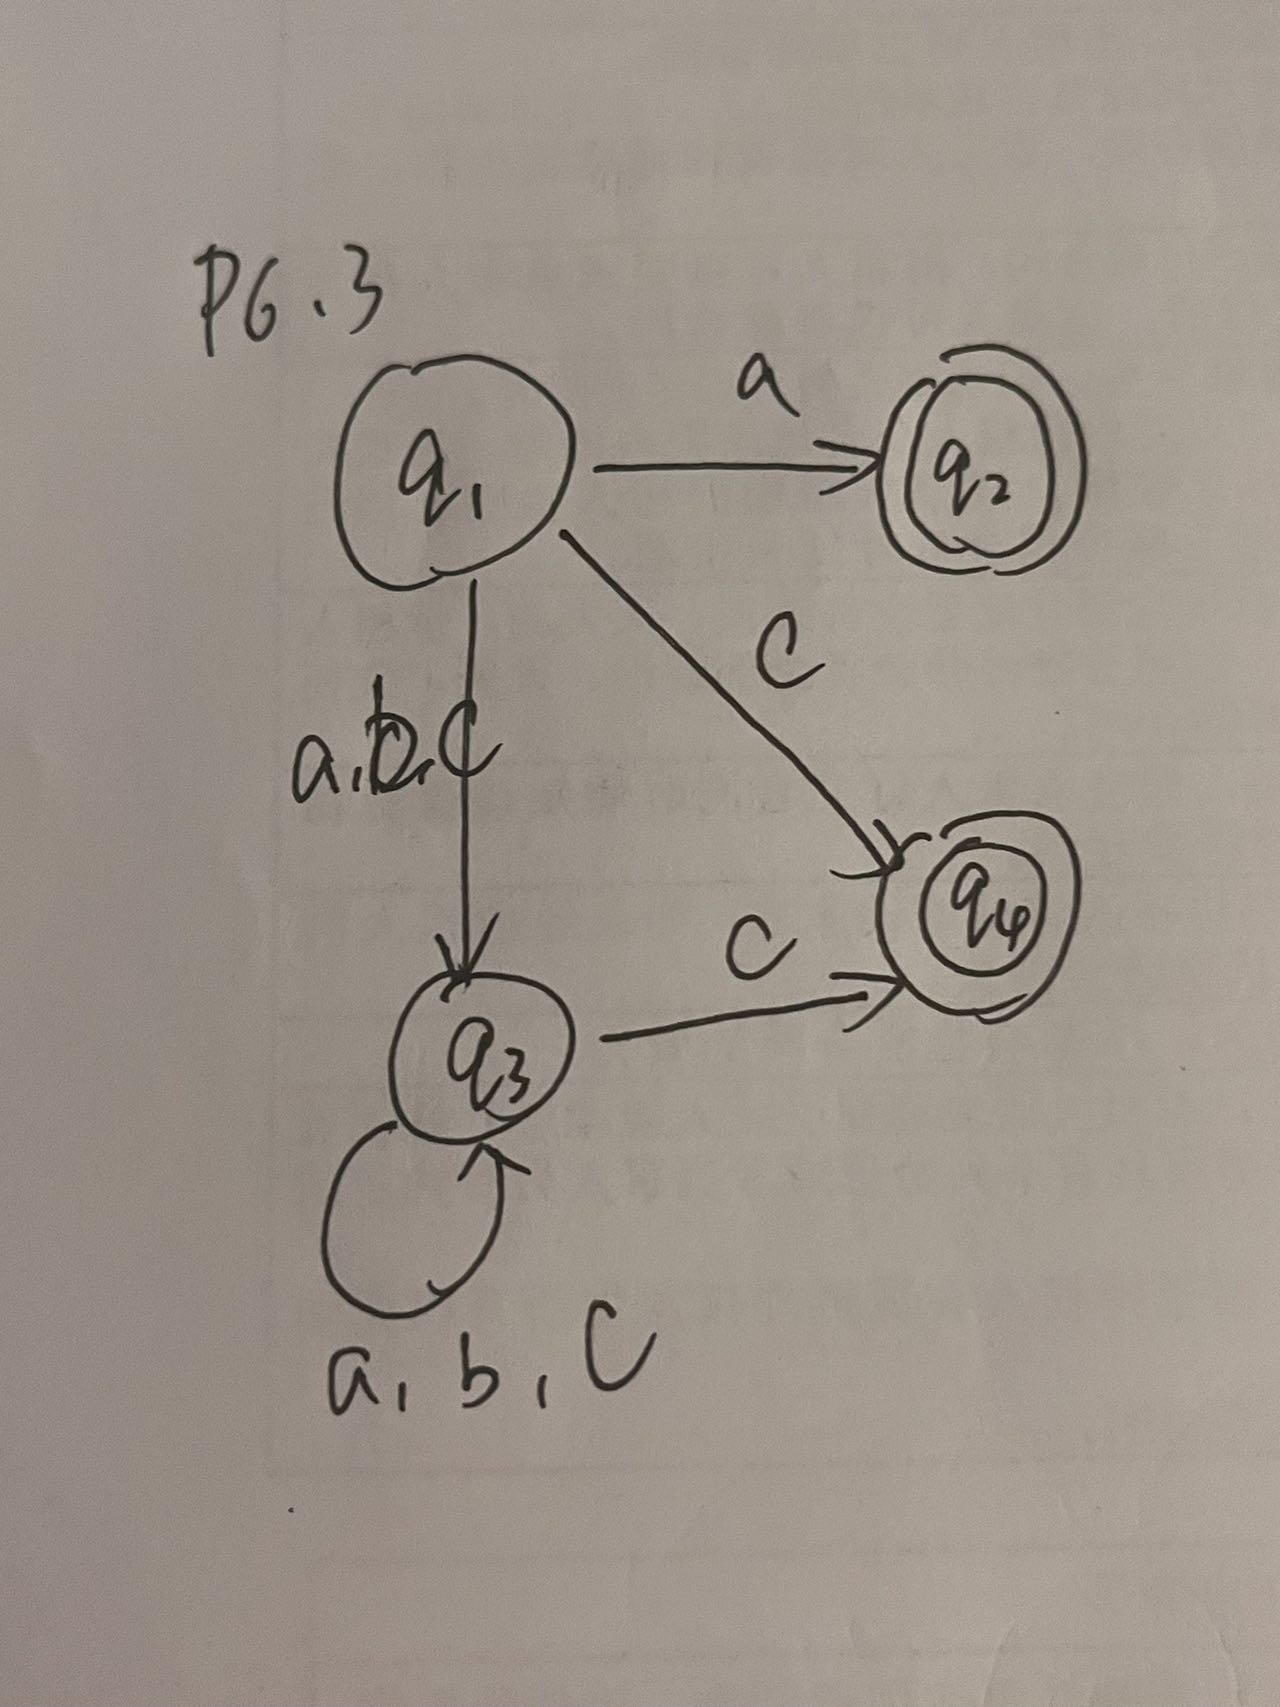 P6.3
a
q1
q2
c
a,b,c
q4
c
q3
a, b, c